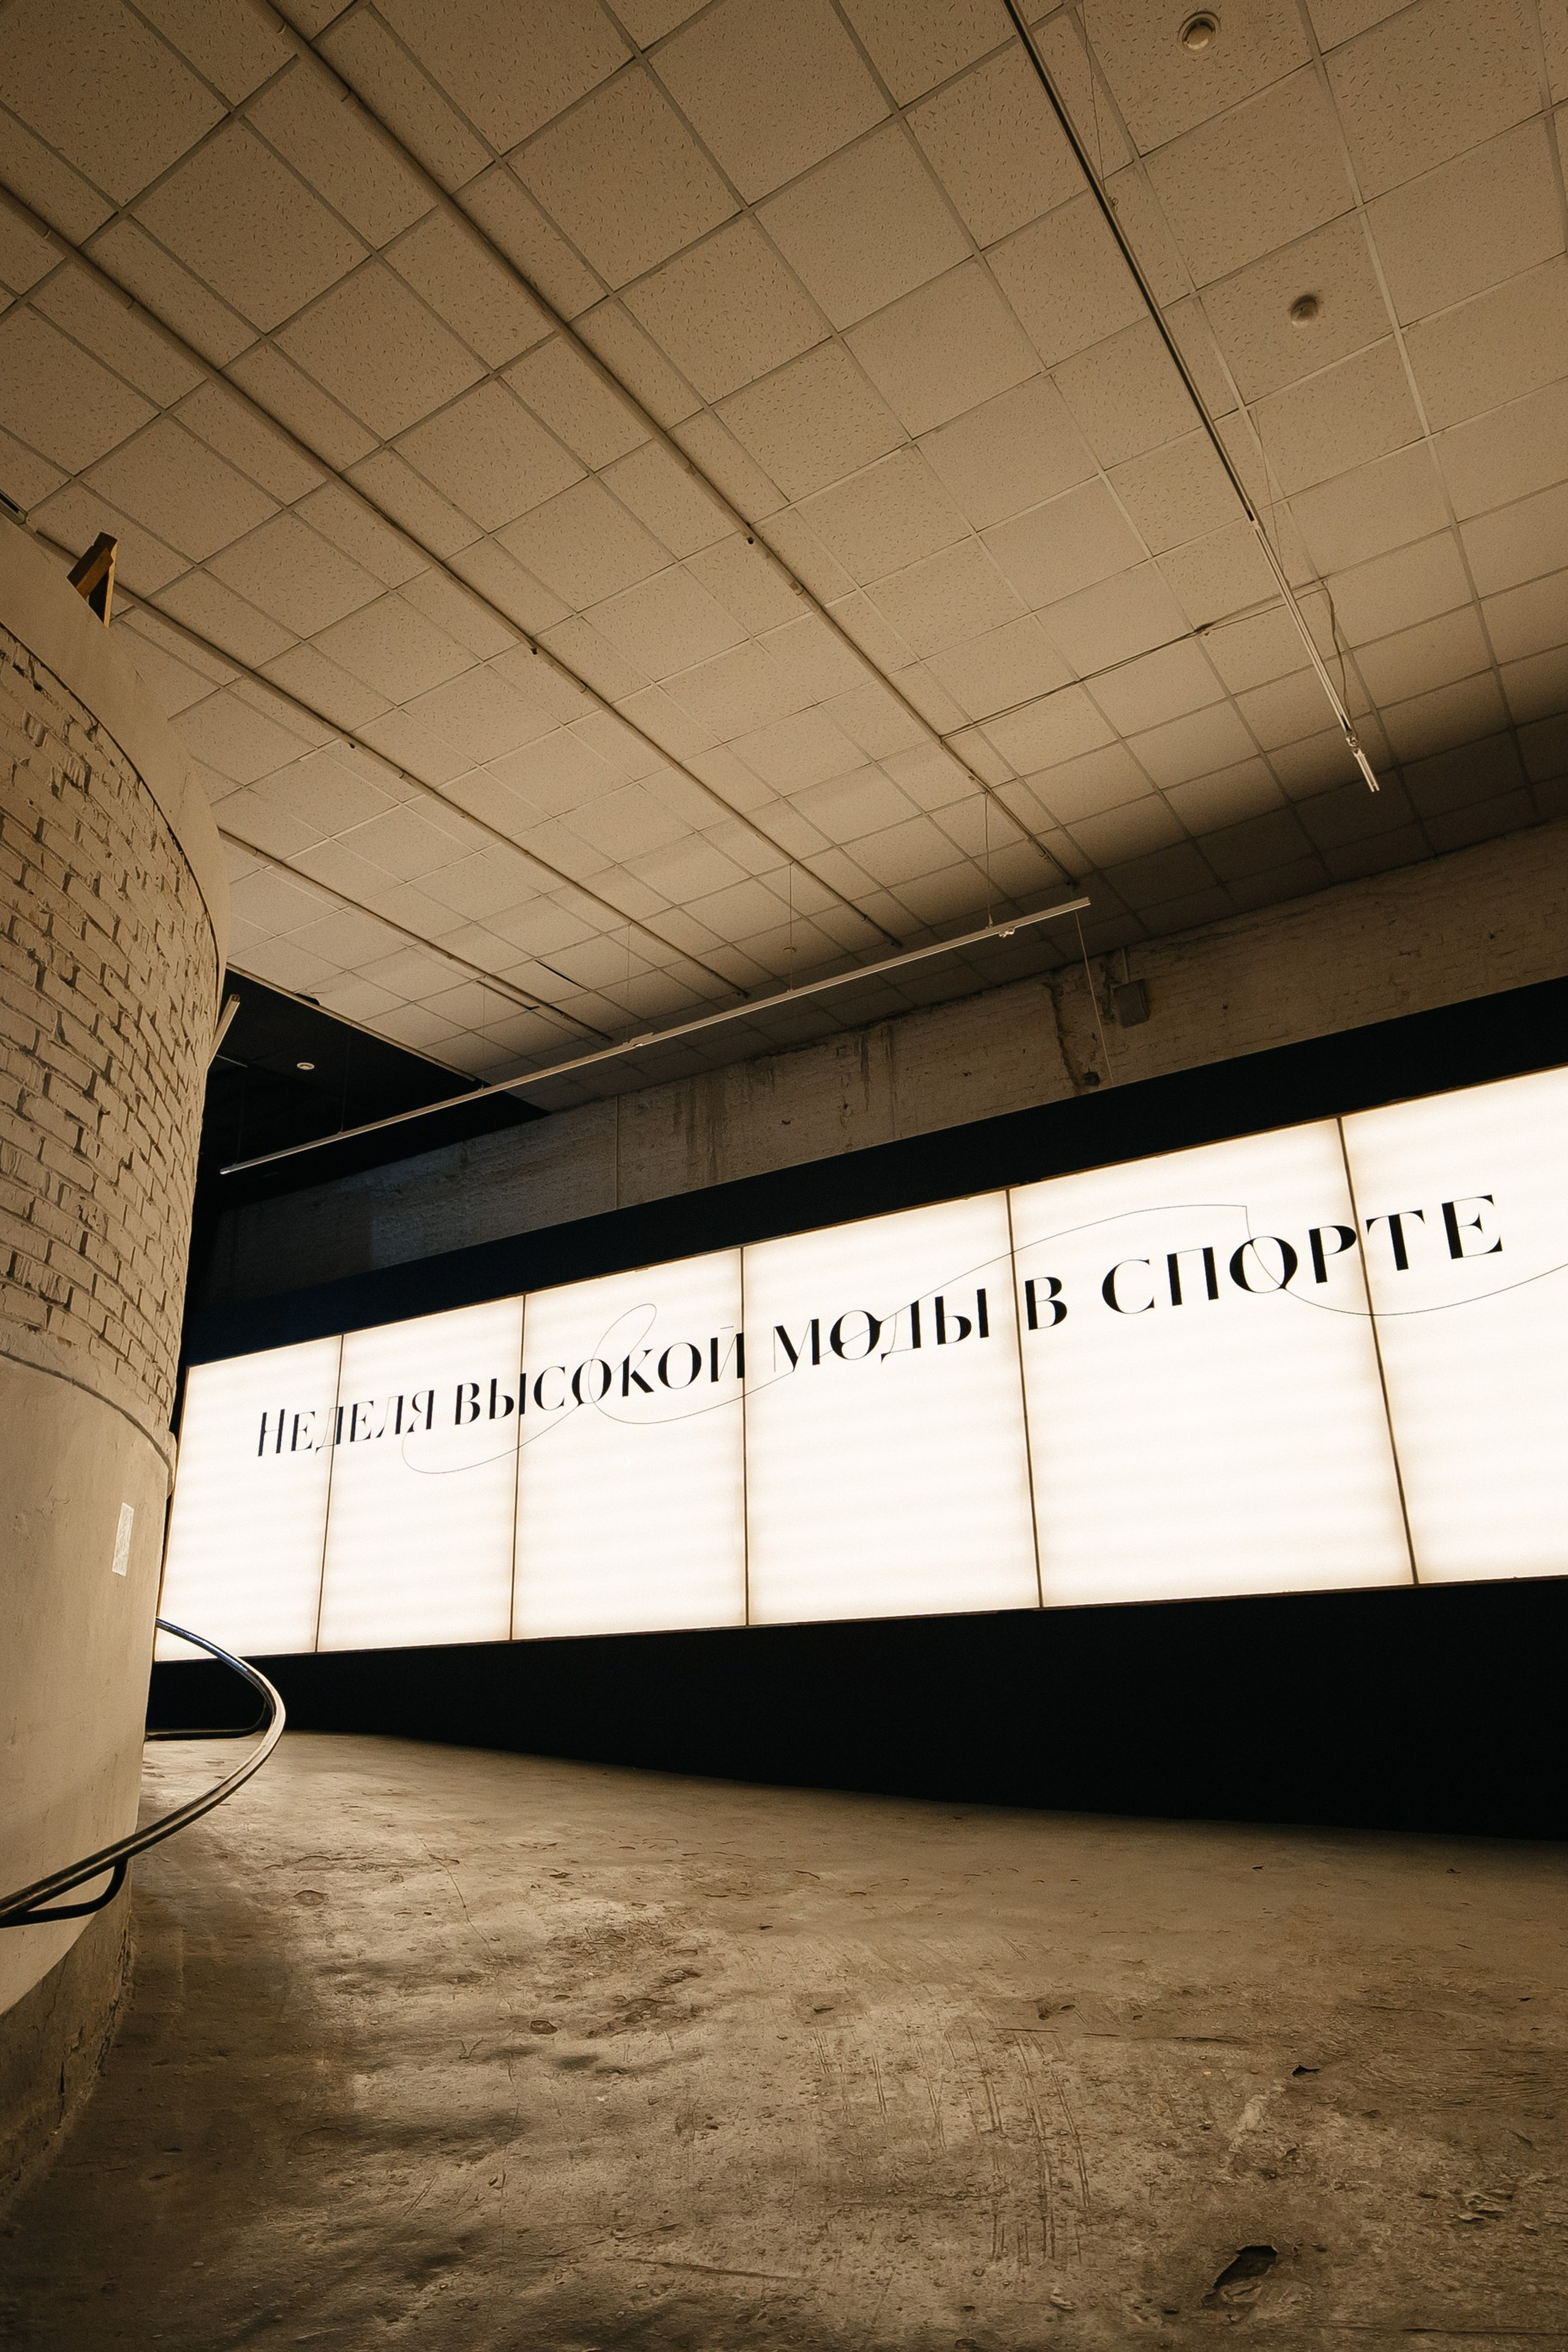 Неделя высокой моды в спорте